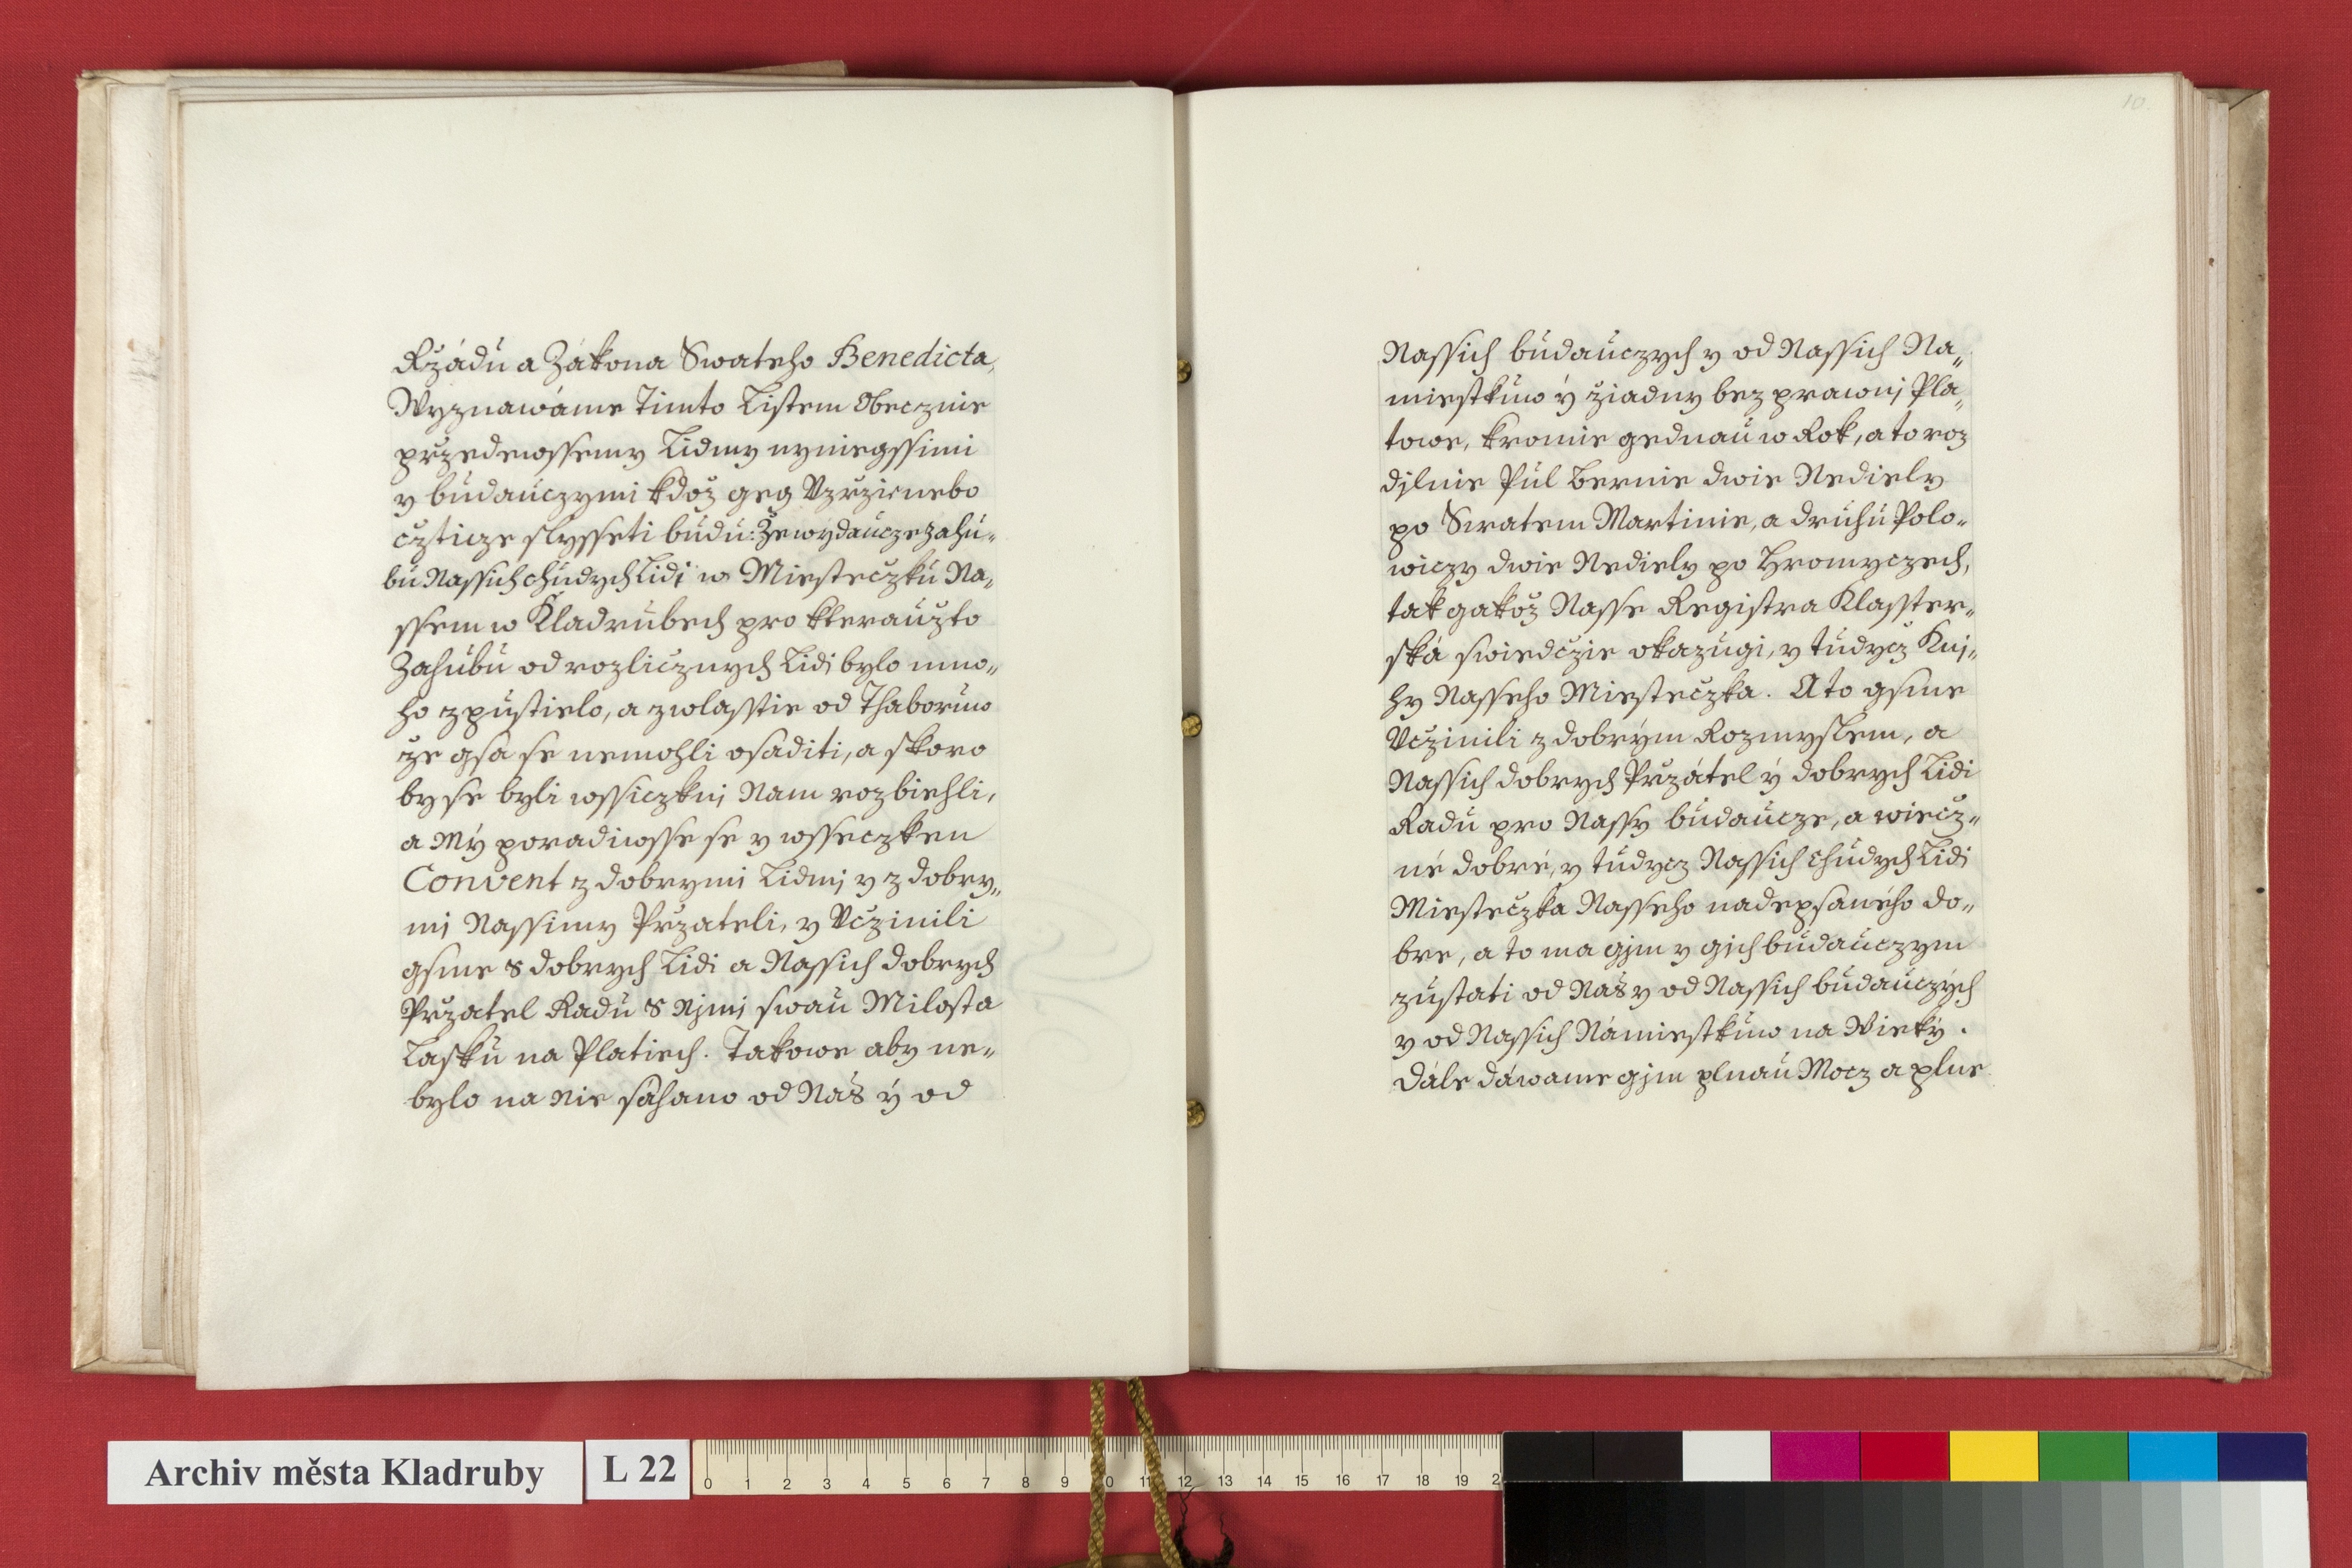 Rzádu a Zákona Swateho Benedicta,
Wyznawáme Timto Listem Obecznie
przedewssemy Lidmy nyniegssimi
y budauczymi kdož geg Vzržie nebo
czticze slysseti budu: Že wydaucze zahu„
bu Nassich chudych Lidj w Miesteczku Na„
ssem w Kladrubech pro kteraužto
Zahubu od rozlicznych Lidi bylo mno„
ho zpustielo, a zwlasstie od Thaboruw
že gsa se nemohli osaditi, a skoro
by se byli wssiczknj Nam rozbiehli,
a Mý poradiwsse se y wsseczken
Convent z dobrymi Lidmj y z dobry„
mj Nassimy Przateli, y Vczinili
gsme s dobrych Lidi a Nassich dobrych
Przatel Radu s Njmj swau Milosta
Lasku na Platiech. Takowe aby ne„
bylo na Nie sáhano od Nás ý od
10.
Nassich budauczych y od Nassich Na„
miestkuw ý žiadny bez prawnj Pla„
towe, kromie gednau w Rok, a to roz
djlnie Pul Bernie dwie Nediely
po Swatem Martinie, a druhu Polo„
wiczy dwie Nediely po Hromyczech,
tak gakož Nasse Registra Klasster„
ská swiedczie okazugi, y tudycz Knj„
hy Nasseho Miesteczka. A to gsme
Vczinili z dobrým Rozmyslem, a
Nassich dobrych Przátel ý dobrych Lidi
Radu pro Nassy budaucze, a wiecz„
né dobré, y tudycz Nassich chudych Lidi
Miesteczka Nasseho nadepsaného do„
bre, a to ma gjm y gjch budauczym
zustati od Nás y od Nassich budauczých
y od Nassich Námiestkuw na Wieký.
Dále dáwame gjm plnau Mocz a plne
Archiv města Kladruby
L 22
0 1 2 3 4 5 6 7 8 9 10 11 12 13 14 15 16 17 18 19 2